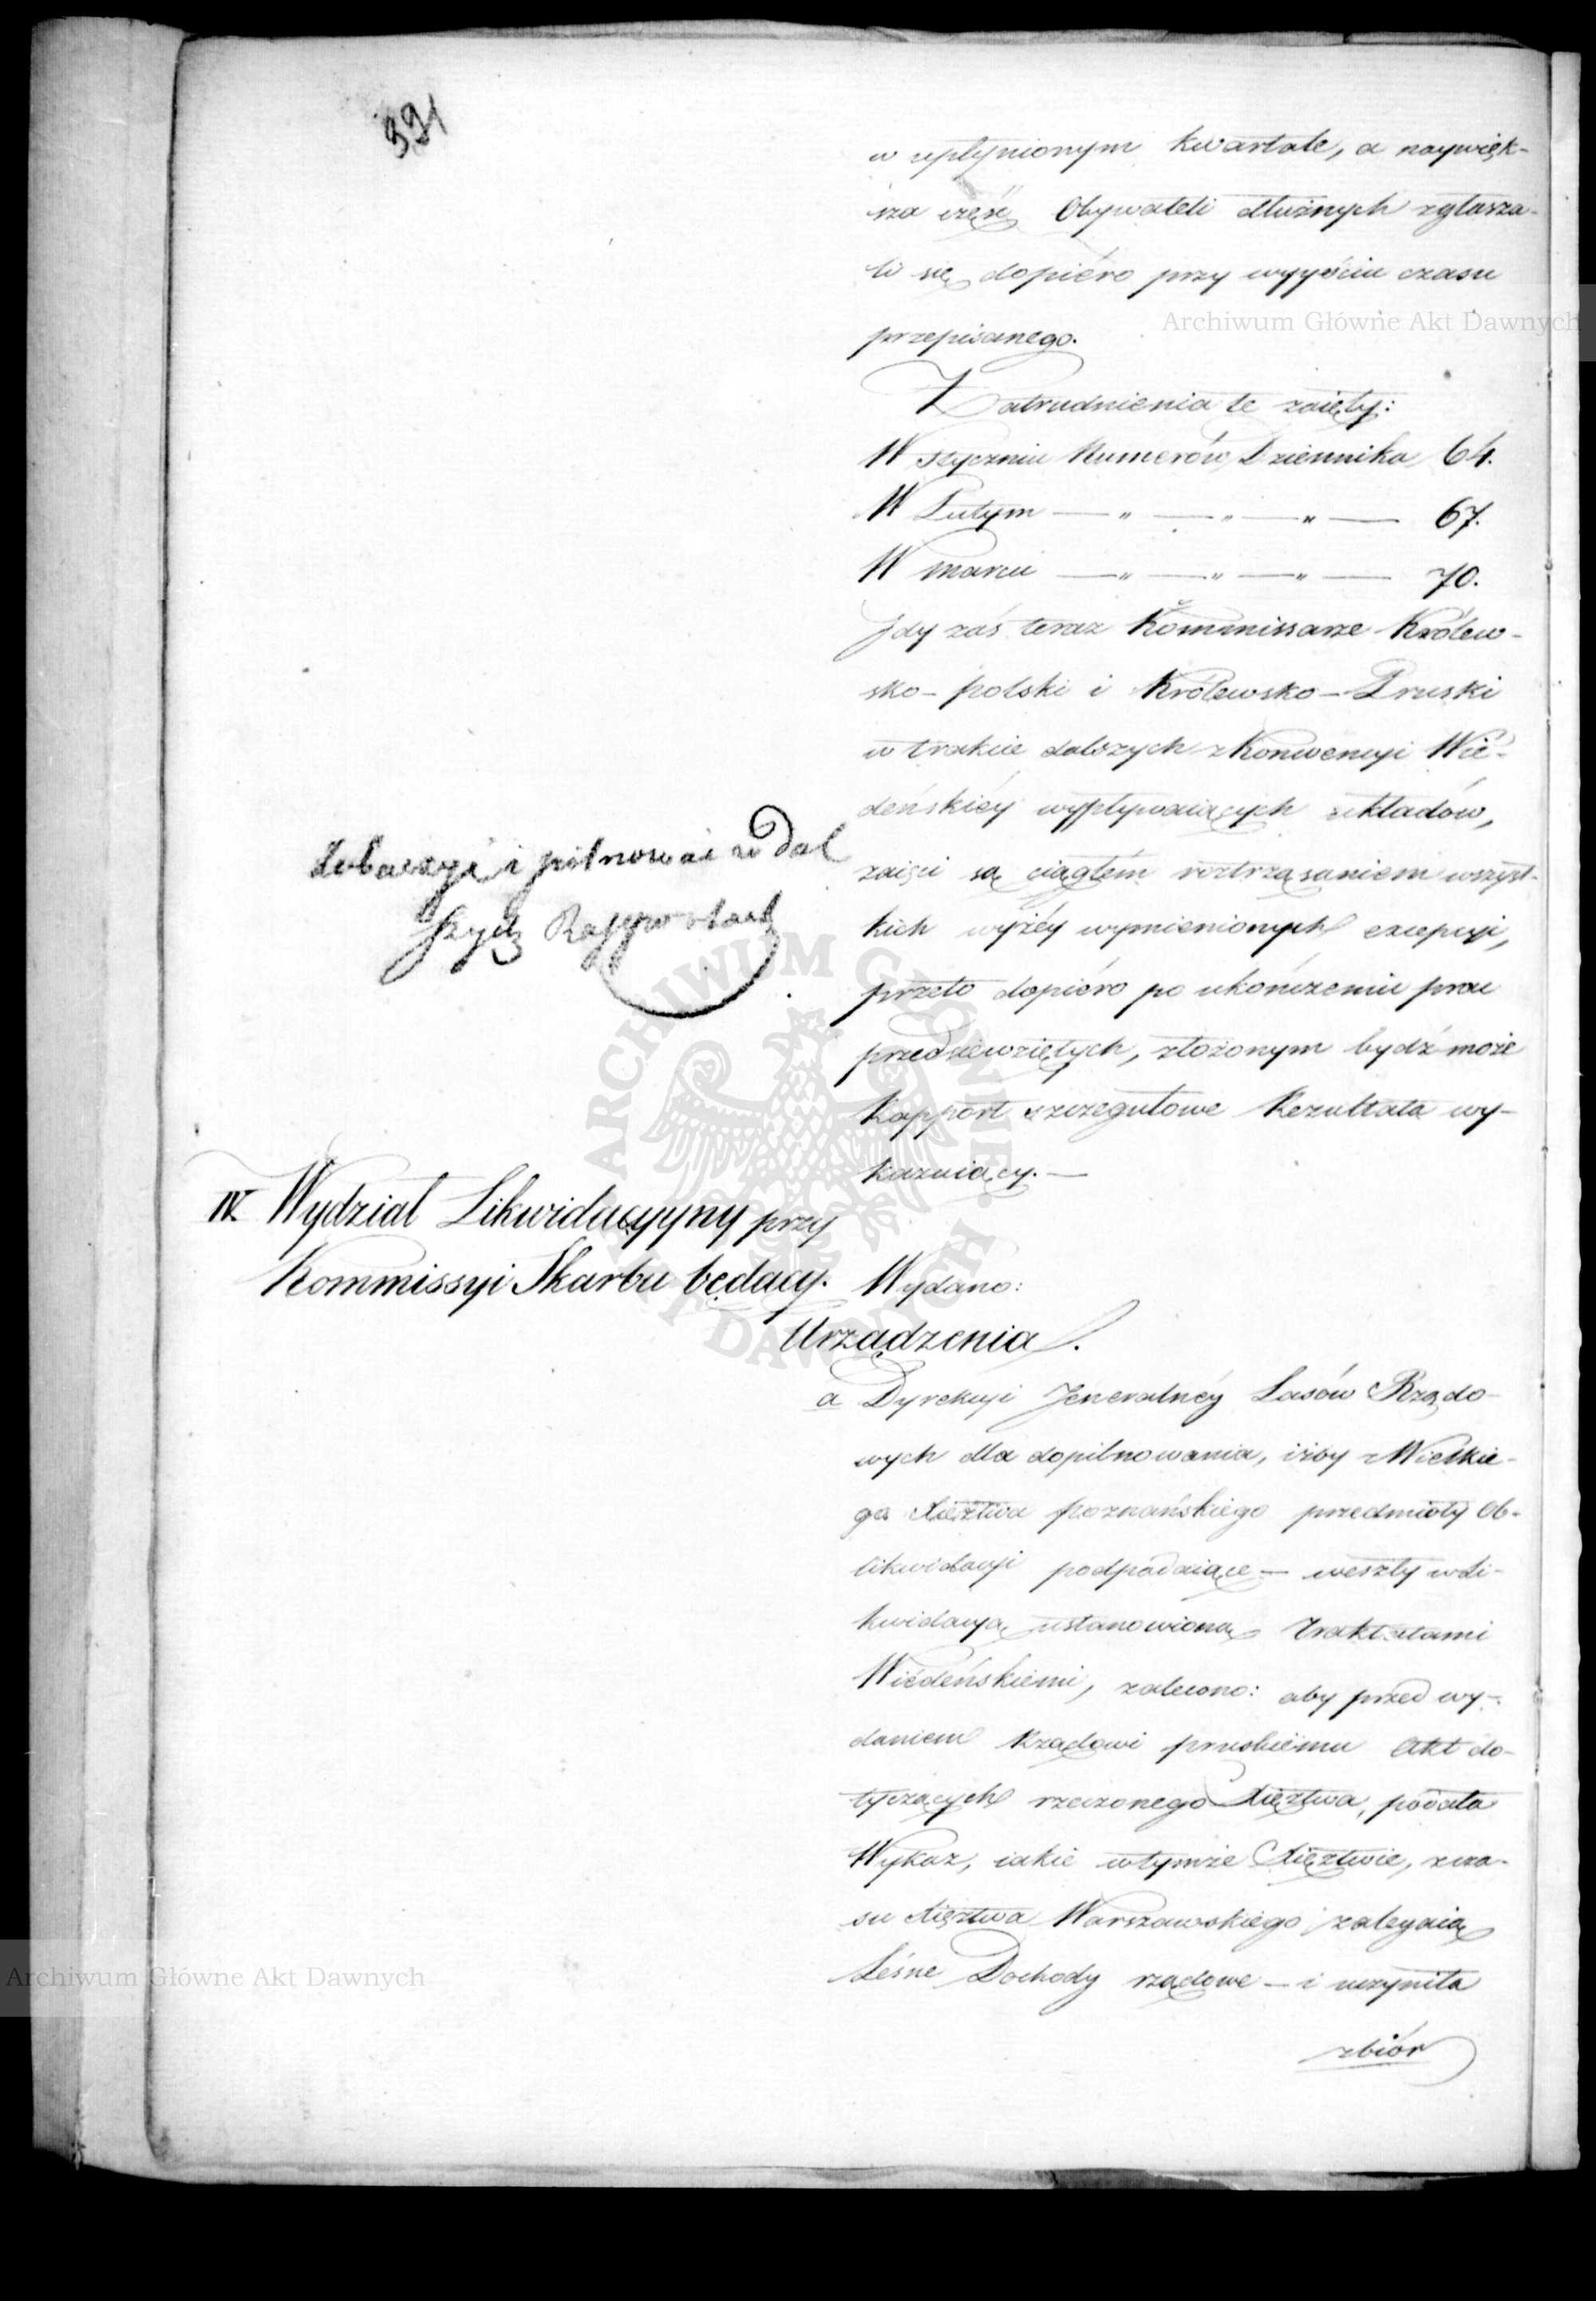 391
w upłynionym kwartale, a naywięk-
sza część Obywateli dłużnych zgłasza-
li się dopiéro przy wyyściu czasu
przepisanego.
Zatrudnienia te zaięły:
W Styczniu Numerów Dziennika 64.
W Lutym — " — " — " — 67.
W marcu — " — " — " — 70.
Gdy zaś teraz Kommissarze Królew-
sko-polski i Królewsko-Pruski
w trakcie dalszych z Konwencyi Wie-
deńskiéy wypływaiących układów,
zaięci są ciągłém roztrząsaniem wszyst-
kich wyżéy wymienionych excepcyi,
przeto dopiéro po ukończeniu prac
przedsiewziętych, złożonym bydź może
Rapport szczegułowe Rezultata wy-
kazuiący. —
Zobaczyć i pilnować w dal
szych Rapportach
IV. Wydział Likwidacyyny przy
Kommissyi Skarbu będący.
Wydano:
Urządzenia.
a Dyrekcyi Jeneralnéy Lasów Rządo-
wych dla dopilnowania, iżby z Wielkie-
go Xięztwa poznańskiego przedmioty Ob-
likwidacyi podpadaiące — weszły w Li-
kwidacyą ustanowioną Traktatami
Wiedeńskiemi, zalecono: aby przed wy-
daniem Rządowi pruskiému Akt do-
tyczących rzeczonego Xięztwa, podała
Wykaz, iakie w tymże Xięztwie, z cza-
su Xięztwa Warszawskiego zalegaią
Leśne Dochody rządowe — i uczyniła
zbiór
Archiwum Główne Akt Dawnych
Archiwum Główne Akt Dawnych
ARCHIWUM GŁÓWNE AKT DAWNYCH